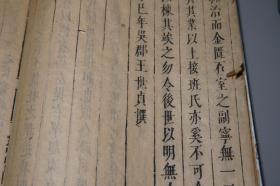 治而金匱石室之副寧無一
其業以上接班氏亦奚不可
棟其竢之勿令後世以明無
巳年吳郡王世貞譔